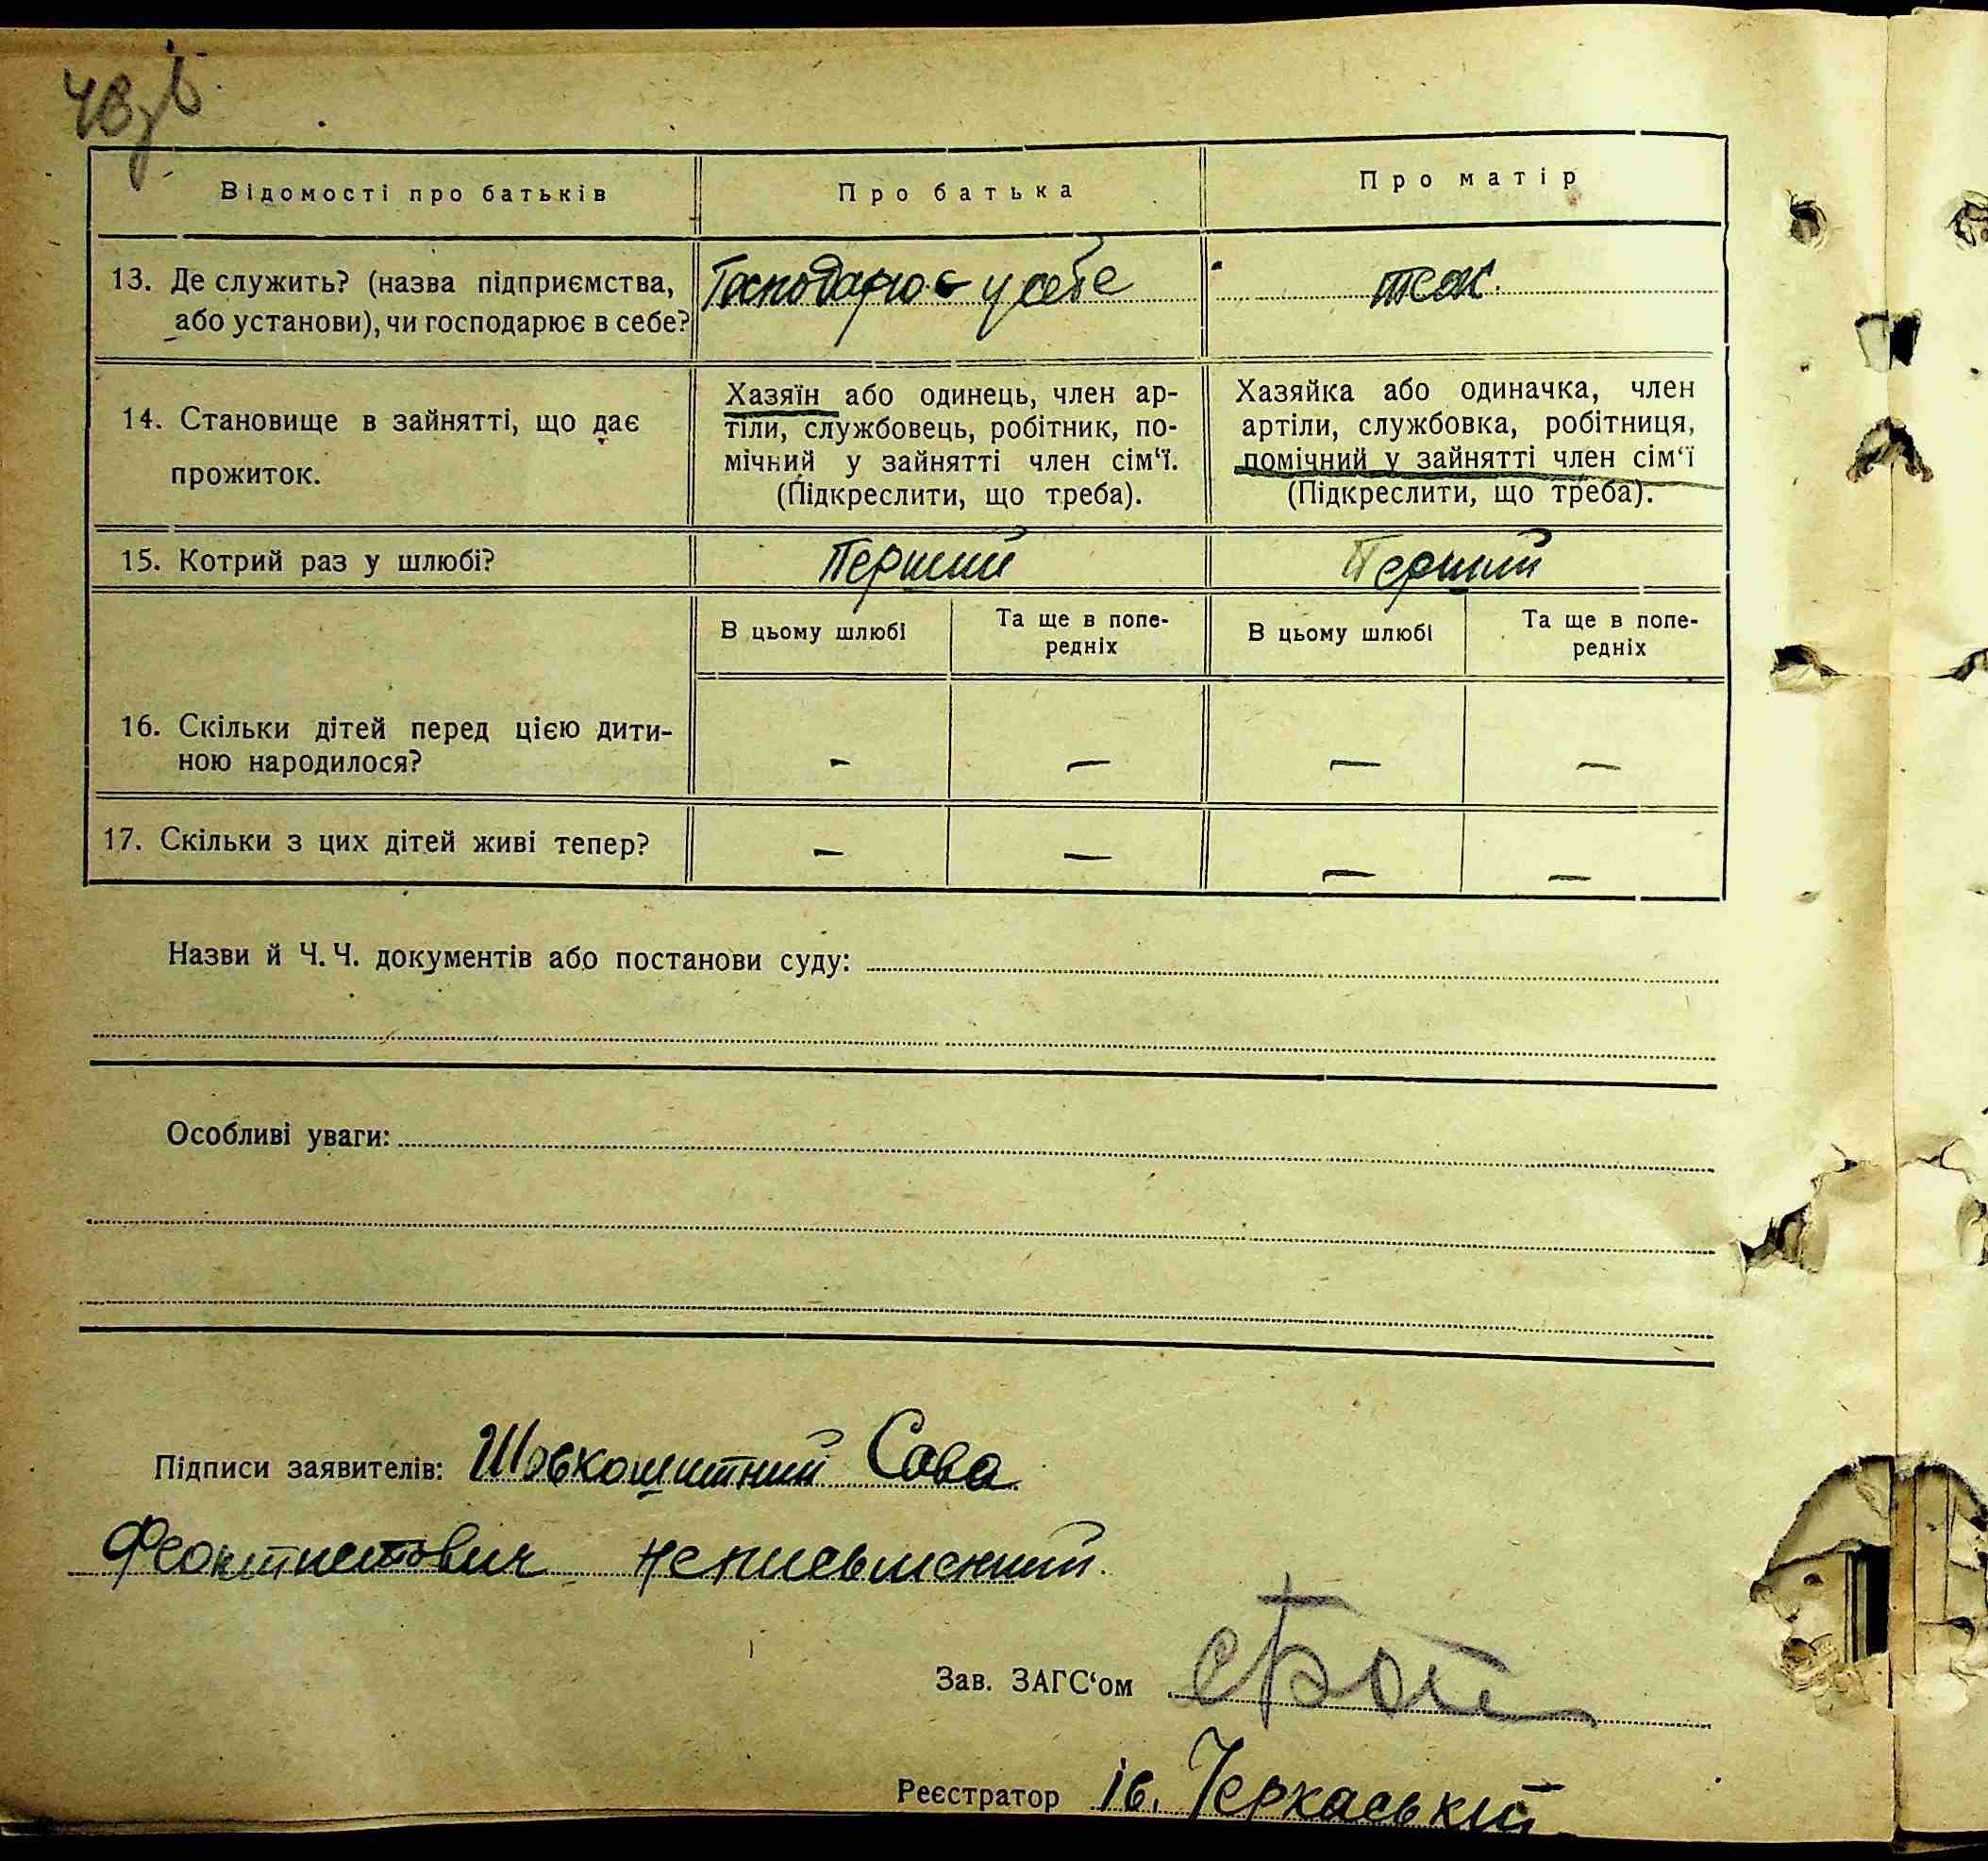 48зв
Відомості про батьків
Про батька
Про матір
13. Де служить? (назва підприємства,
або установи), чи господарює в себе?
Господарює у себе
теж.
14. Становище в зайнятті, що дає
прожиток.
Хазяїн або одинець, член ар-
тіли, службовець, робітник, по-
мічний у зайнятті член сім‘ї.
(Підкреслити, що треба).
Хазяйка або одиначка, член
артіли, службовка, робітниця,
помічний у зайнятті член сім‘ї
(Підкреслити, що треба).
15. Котрий раз у шлюбі?
Перший
Перший
В цьому шлюбі
Та ще в попе-
редніх
В цьому шлюбі
Та ще в попе-
редніх
16. Скільки дітей перед цією дити-
ною народилося?
- — — —
17. Скільки з цих дітей живі тепер?
— — — —
Назви й Ч. Ч. документів або постанови суду:
Особливі уваги:
Підписи заявителів: Шовкошитний Сава
Феоктистович неписьменний.
Зав. ЗАГС‘ом
Реєстратор Ів. Черкаський